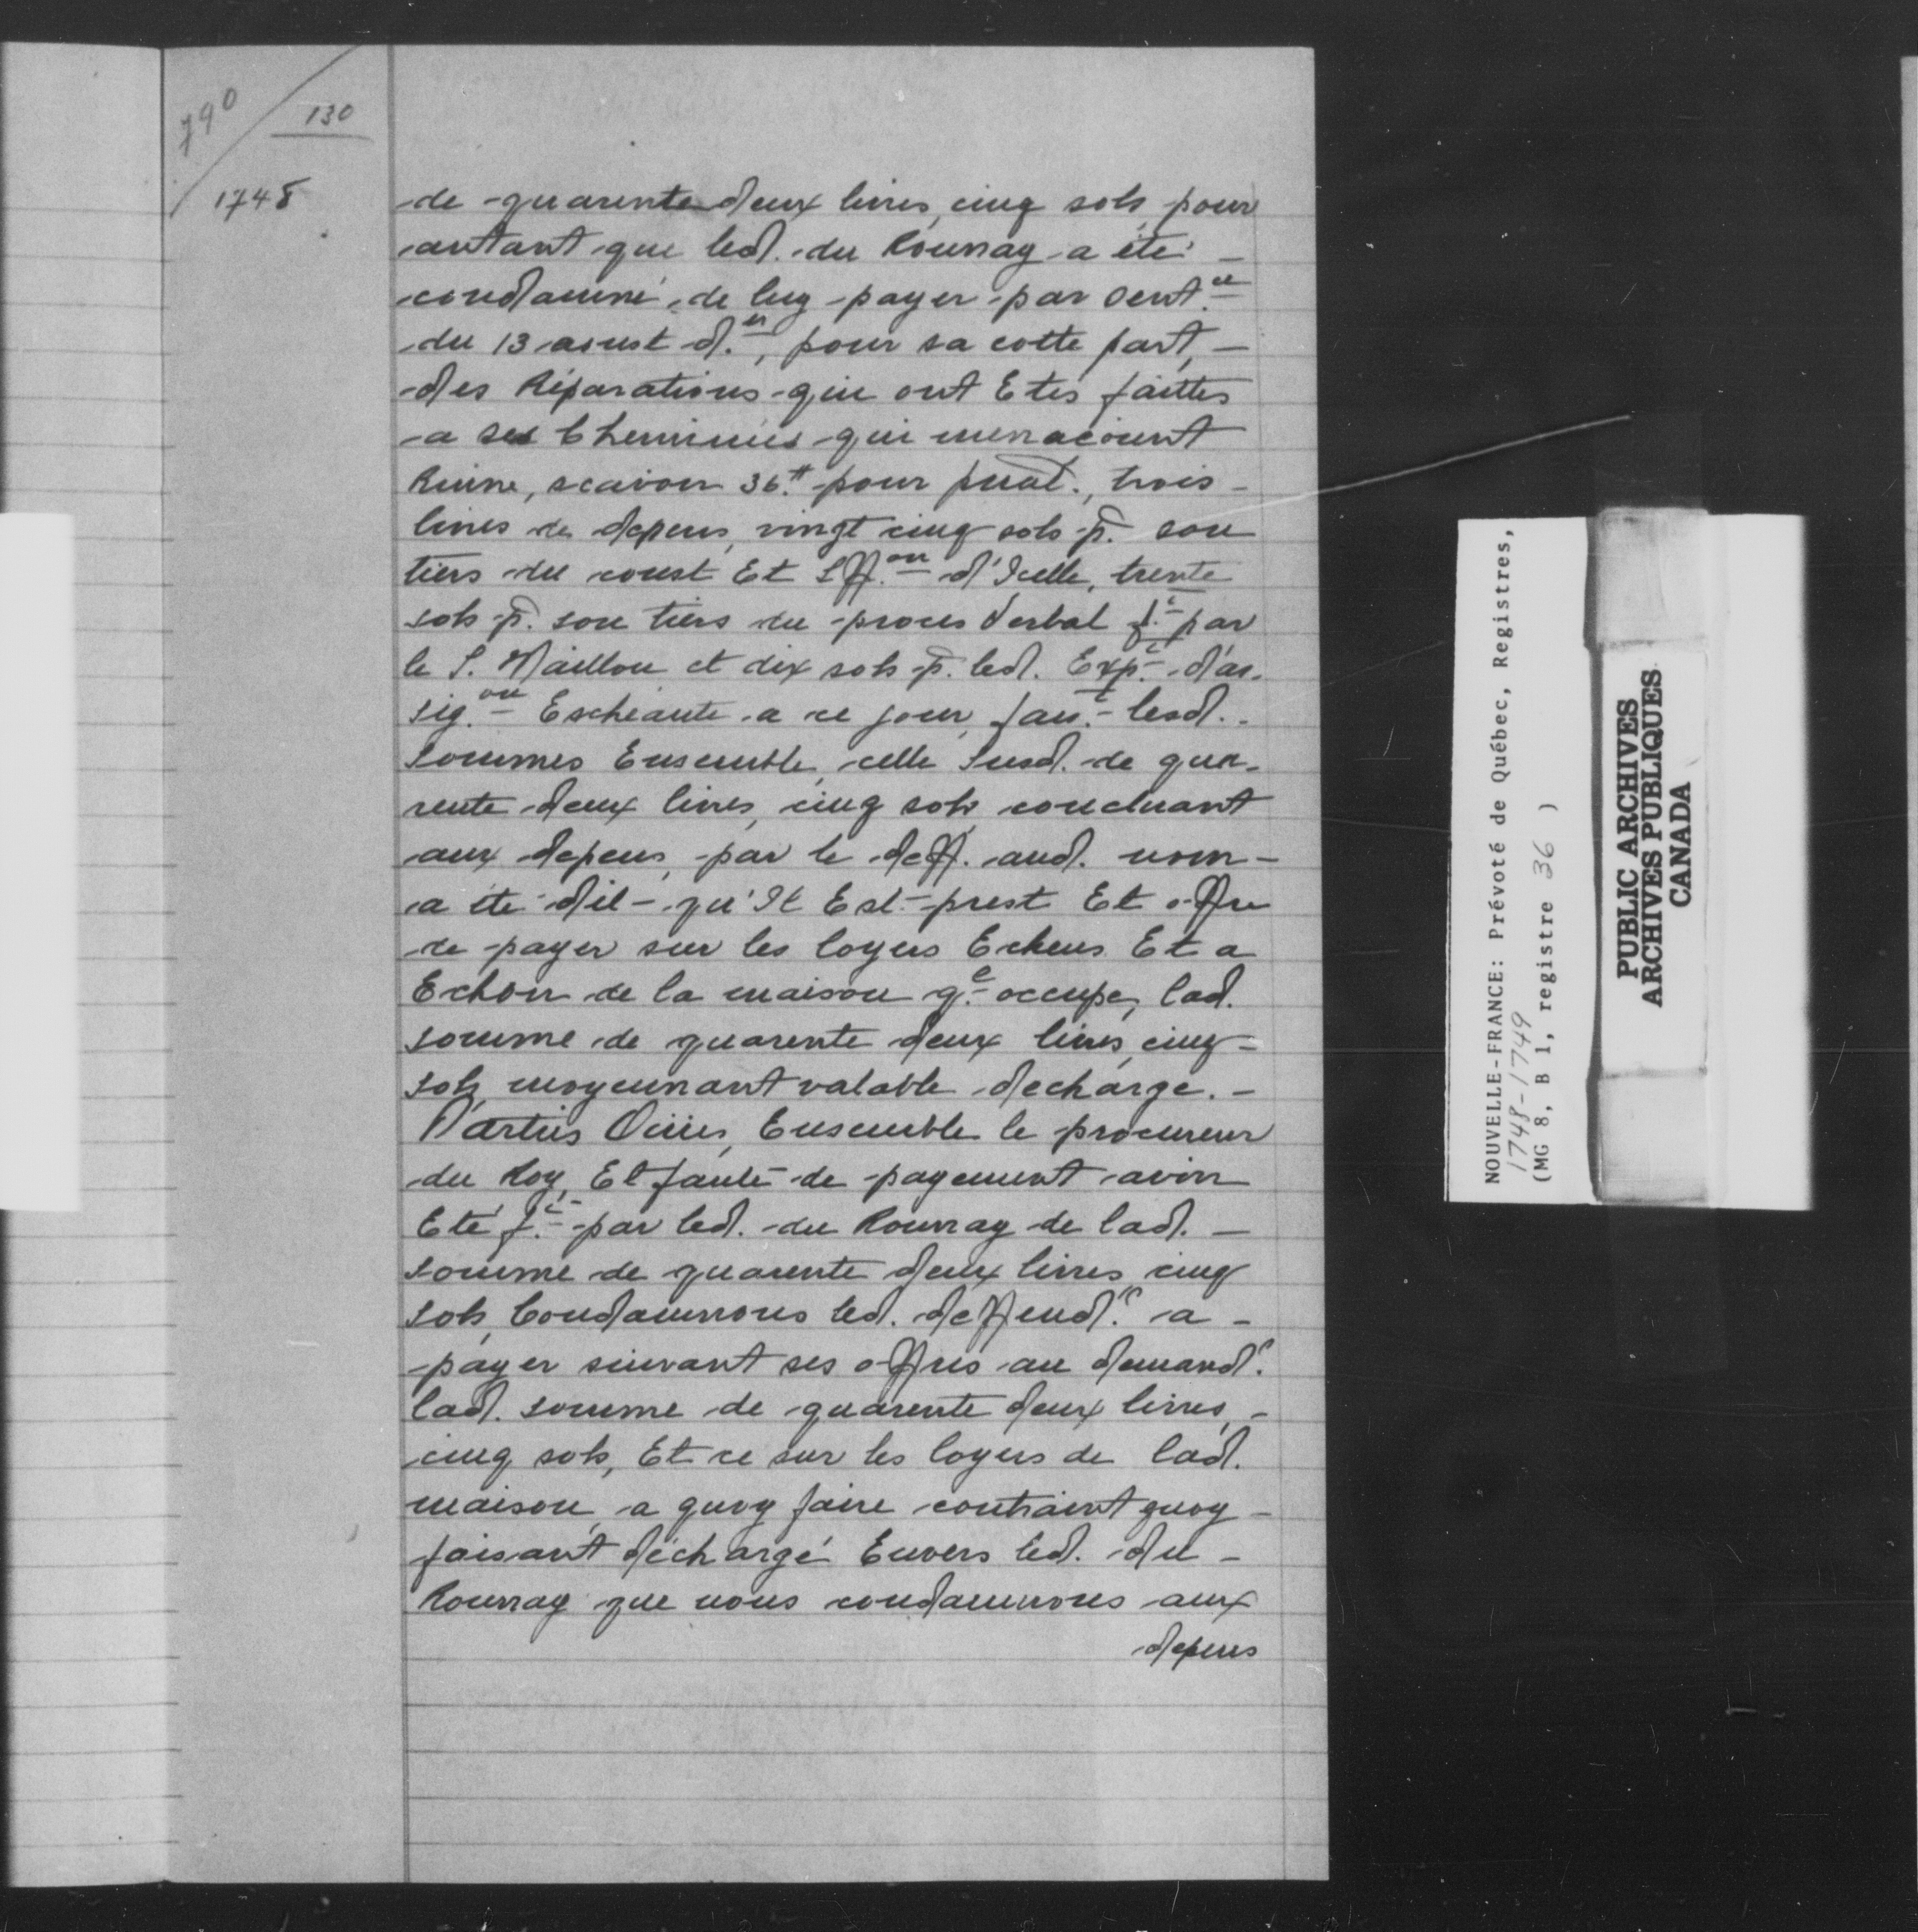 790
130
1748
de quarente deux livres, cinq sols, pour
autant que led. du Rouvray a été
condamné de luy payer par sent.ce
du 13 aoust d.er, pour sa cotte part,
des Réparations qui ont Etés faittes
a ses Cheminées qui menacoient
Ruine, scavoir 36.# pour pnal., trois
livres de depens, vingt cinq sols p. son
tiers du coust Et s.on d'Icelle, trente
sols p. son tiers du proces Verbal f.t par
le S. Maillou et dix sols p. led. Exp.t d'as-
sig.on Eschéante a ce jour, fais.t lesd.
sommes Ensemble, celle Susd. de qua-
rente deux livres, cinq sols, concluant
aux depens, par le deff. aud. nom
a été dit qu'Il Est prest Et offre
de payer sur les loyers Echeus Et a
Echoir de la maison q.l occupe, lad.
somme de quarente deux livres, cinq
sols, moyennant valable decharge.
Parties Oüies, Ensemble le procureur
du Roy, Et faute de payement avoir
Eté f.t par led. du Rouvray de lad.
somme de quarente deux livres, cinq
sols, Condamnons led. deffend.r a
payer suivant ses offres au demand.r
lad. somme de quarente deux livres,
cinq sols, Et ce sur les loyers de lad.
maison, a quoy faire contraint quoy
faisant déchargé Envers led. du
Rouvray que nous condamnons aux
depens
NOUVELLE-FRANCE: Prévoté de Québec, Registres,
1748-1749
(MG 8, B 1, registre 36 )
PUBLIC ARCHIVES
ARCHIVES PUBLIQUES
CANADA